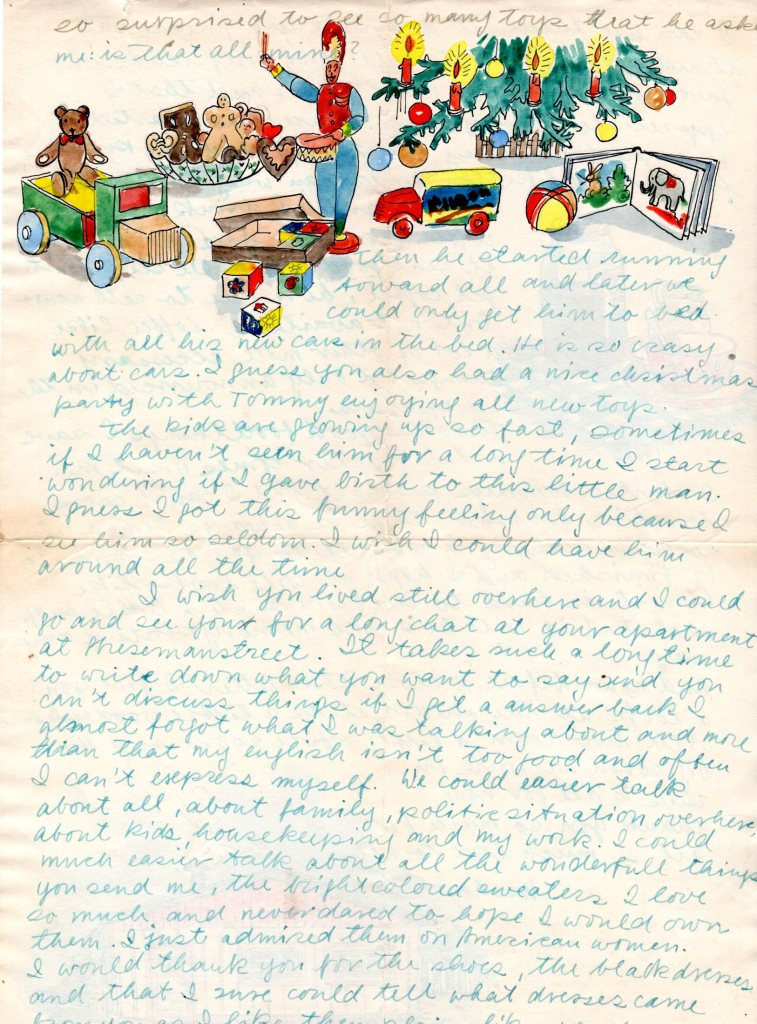 so surprised to see so many toys that he aske
me: is that all mine?
then he started running
toward all and later we
could only get him to bed
with all his new cars in the bed. He is so crasy
about cars. I guess you also had a nice christmas
party with Tommy enjoying all new toys.
The kids are growing up so fast, sometimes
if I haven't seen him for a long time I start
wondering if I gave birth to this little man.
I guess I got this funny feeling only because I
see him so seldom. I wish I could have him
around all the time
I wish you lived still overhere and I could
go and see your for a long chat at your apartment
at Stresemanstreet. It takes such a long time
to write down what you want to say and you
can't discuss things if I get a answer back I
almost forgot what I was talking about and more
than that my english isn't too good and often
I can't express myself. We could easier talk
about all, about family, politic situation overhere,
about kids, housekeeping and my work. I could
much easier talk about all the wonderfull things
you send me, the brightcolored sweaters I love
so much and never dared to hope I would own
them. I just admired them on American women.
I would thank you for the shoes, the black dresses
and that I sure could tell what dresses came
from you as I like them